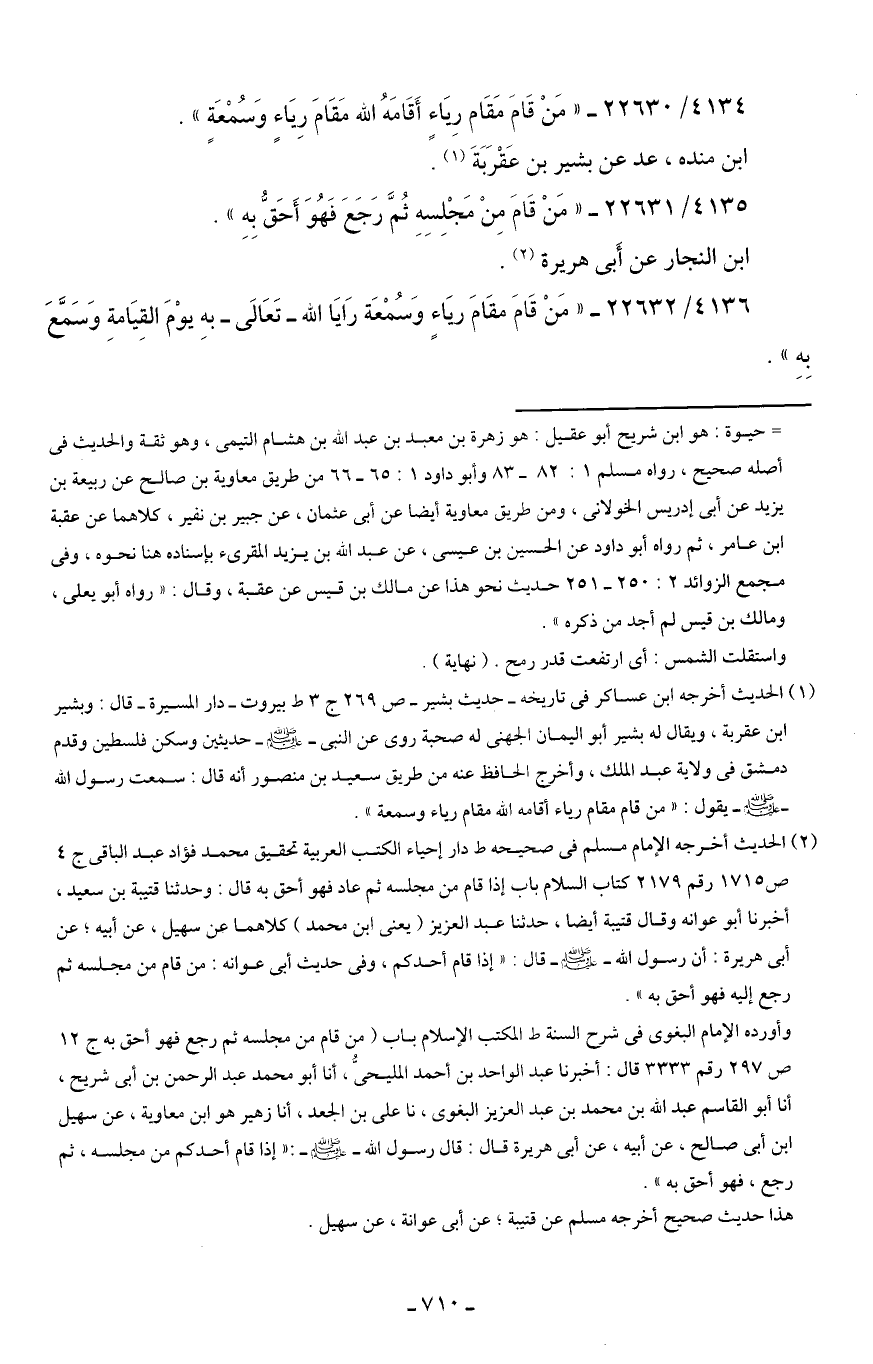 ٤١٣٤/ ٢٢٦٣٠ ـ « مَنْ قَامَ مَقَام رِيَاءٍ أَقَامَهُ الله مَقَامَ رِيَاءٍ وَسُمْعَةٍ » .
ابن منده ، عد عن بشير بن عَقْرَبَةَ (١) .
٤١٣٥/ ٢٢٦٣١ ـ « مَنْ قَامَ مِنْ مَجْلِسِهِ ثُمَّ رَجَعَ فَهُوَ أَحَقُّ بِهِ » .
ابن النجار عن أَبى هريرة (٢) .
٤١٣٦/ ٢٢٦٣٢ ـ « مَنْ قَامَ مقَامَ رِيَاءٍ وَسُمْعَة رَايَا الله ـ تَعَالَى ـ بِهِ يوْمَ القِيَامةِ وَسَمَّعَ
بِهِ » .
= حيوة : هو ابن شريح أبو عقيل : هو زهرة بن معبد بن عبد الله بن هشام التيمى ، وهو ثقة والحديث فى
أصله صحيح ، رواه مسلم ١ : ٨٢ ـ ٨٣ وأبو داود ١ : ٦٥ ـ ٦٦ من طريق معاوية بن صالح عن ربيعة بن
يزيد عن أبى إدريس الخولانى ، ومن طريق معاوية أيضا عن أبى عثمان ، عن جبير بن نفير ، كلاهما عن عقبة
ابن عامر ، ثم رواه أبو داود عن الحسين بن عيسى ، عن عبد الله بن يزيد المقرىء بإسناده هنا نحوه ، وفى
مجمع الزوائد ٢ : ٢٥٠ ـ ٢٥١ حديث نحو هذا عن مالك بن قيس عن عقبة ، وقال : « رواه أبو يعلى ،
ومالك بن قيس لم أجد من ذكره » .
واستقلت الشمس : أى ارتفعت قدر رمح . ( نهاية ) .
(١) الحديث أخرجه ابن عساكر فى تاريخه ـ حديث بشير ـ ص ٢٦٩ ج ٣ ط بيروت ـ دار المسيرة ـ قال : وبشير
ابن عقربة ، ويقال له بشير أبو اليمان الجهنى له صحبة روى عن النبى ـ ﷺ ـ حديثين وسكن فلسطين وقدم
دمشق فى ولاية عبد الملك ، وأخرج الحافظ عنه من طريق سعيد بن منصور أنه قال : سمعت رسول الله
ـ ﷺ ـ يقول : « من قام مقام رياء أقامه الله مقام رياء وسمعة » .
(٢) الحديث أخرجه الإمام مسلم فى صحيحه ط دار إحياء الكتب العربية تحقيق محمد فؤاد عبد الباقى ج ٤
ص١٧١٥ رقم ٢١٧٩ كتاب السلام باب إذا قام من مجلسه ثم عاد فهو أحق به قال : وحدثنا قتيبة بن سعيد ،
أخبرنا أبو عوانه وقال قتيبة أيضا ، حدثنا عبد العزيز ( يعنى ابن محمد ) كلاهما عن سهيل ، عن أبيه ؛ عن
أبى هريرة : أن رسول الله ـ ﷺ ـ قال : « إذا قام أحدكم ، وفى حديث أبى عوانه : من قام من مجلسه ثم
رجع إليه فهو أحق به » .
وأورده الإمام البغوى فى شرح السنة ط المكتب الإسلام باب ( من قام من مجلسه ثم رجع فهو أحق به ج ١٢
ص ٢٩٧ رقم ٣٣٣٣ قال : أخبرنا عبد الواحد بن أحمد المليحىُّ ، أنا أبو محمد عبد الرحمن بن أبى شريح ،
أنا أبو القاسم عبد الله بن محمد بن عبد العزيز البغوى ، نا على بن الجعد ، أنا زهير هو ابن معاوية ، عن سهيل
ابن أبى صالح ، عن أبيه ، عن أبى هريرة قال : قال رسول الله ـ ﷺ ـ :« إذا قام أحدكم من مجلسه ، ثم
رجع ، فهو أحق به » .
هذا حديث صحيح أخرجه مسلم عن قتيبة ؛ عن أبى عوانة ، عن سهيل .
ـ ٧١٠ ـ